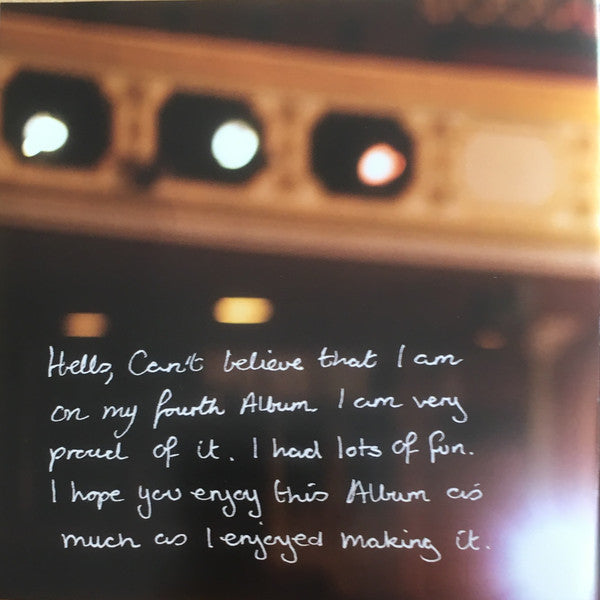 Hello, Can't believe that I am
on my fourth Album I am very
proud of it. I had lots of fun.
I hope you enjoy this Album as
much as I enjoyed making it.